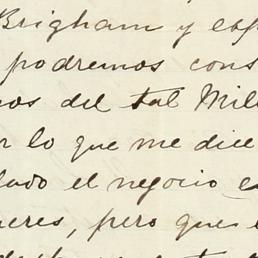 Brigham y esp
podremos cons
os del tal Mil
r lo que me dice
lado el negocio e
eres, pero que